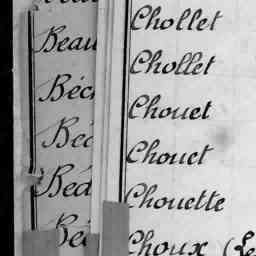 Chollet
Beau
Chollet
Béc
Chouet
Béc
Chouet
Béd
Chouette
Choux (Le